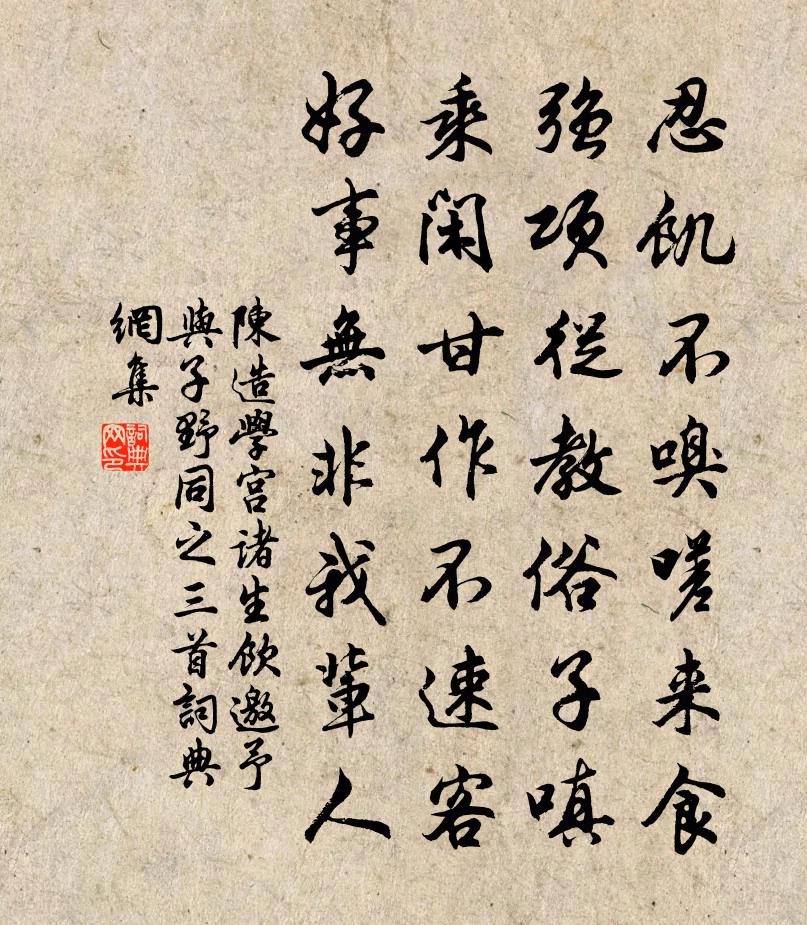 忍飢不嗅嗟来食
強項從教俗子嗔
乘閑甘作不速客
好事無非我輩人
陳造學宮諸生飲邀予
與子野同之三首詞典
網集
詞典網印